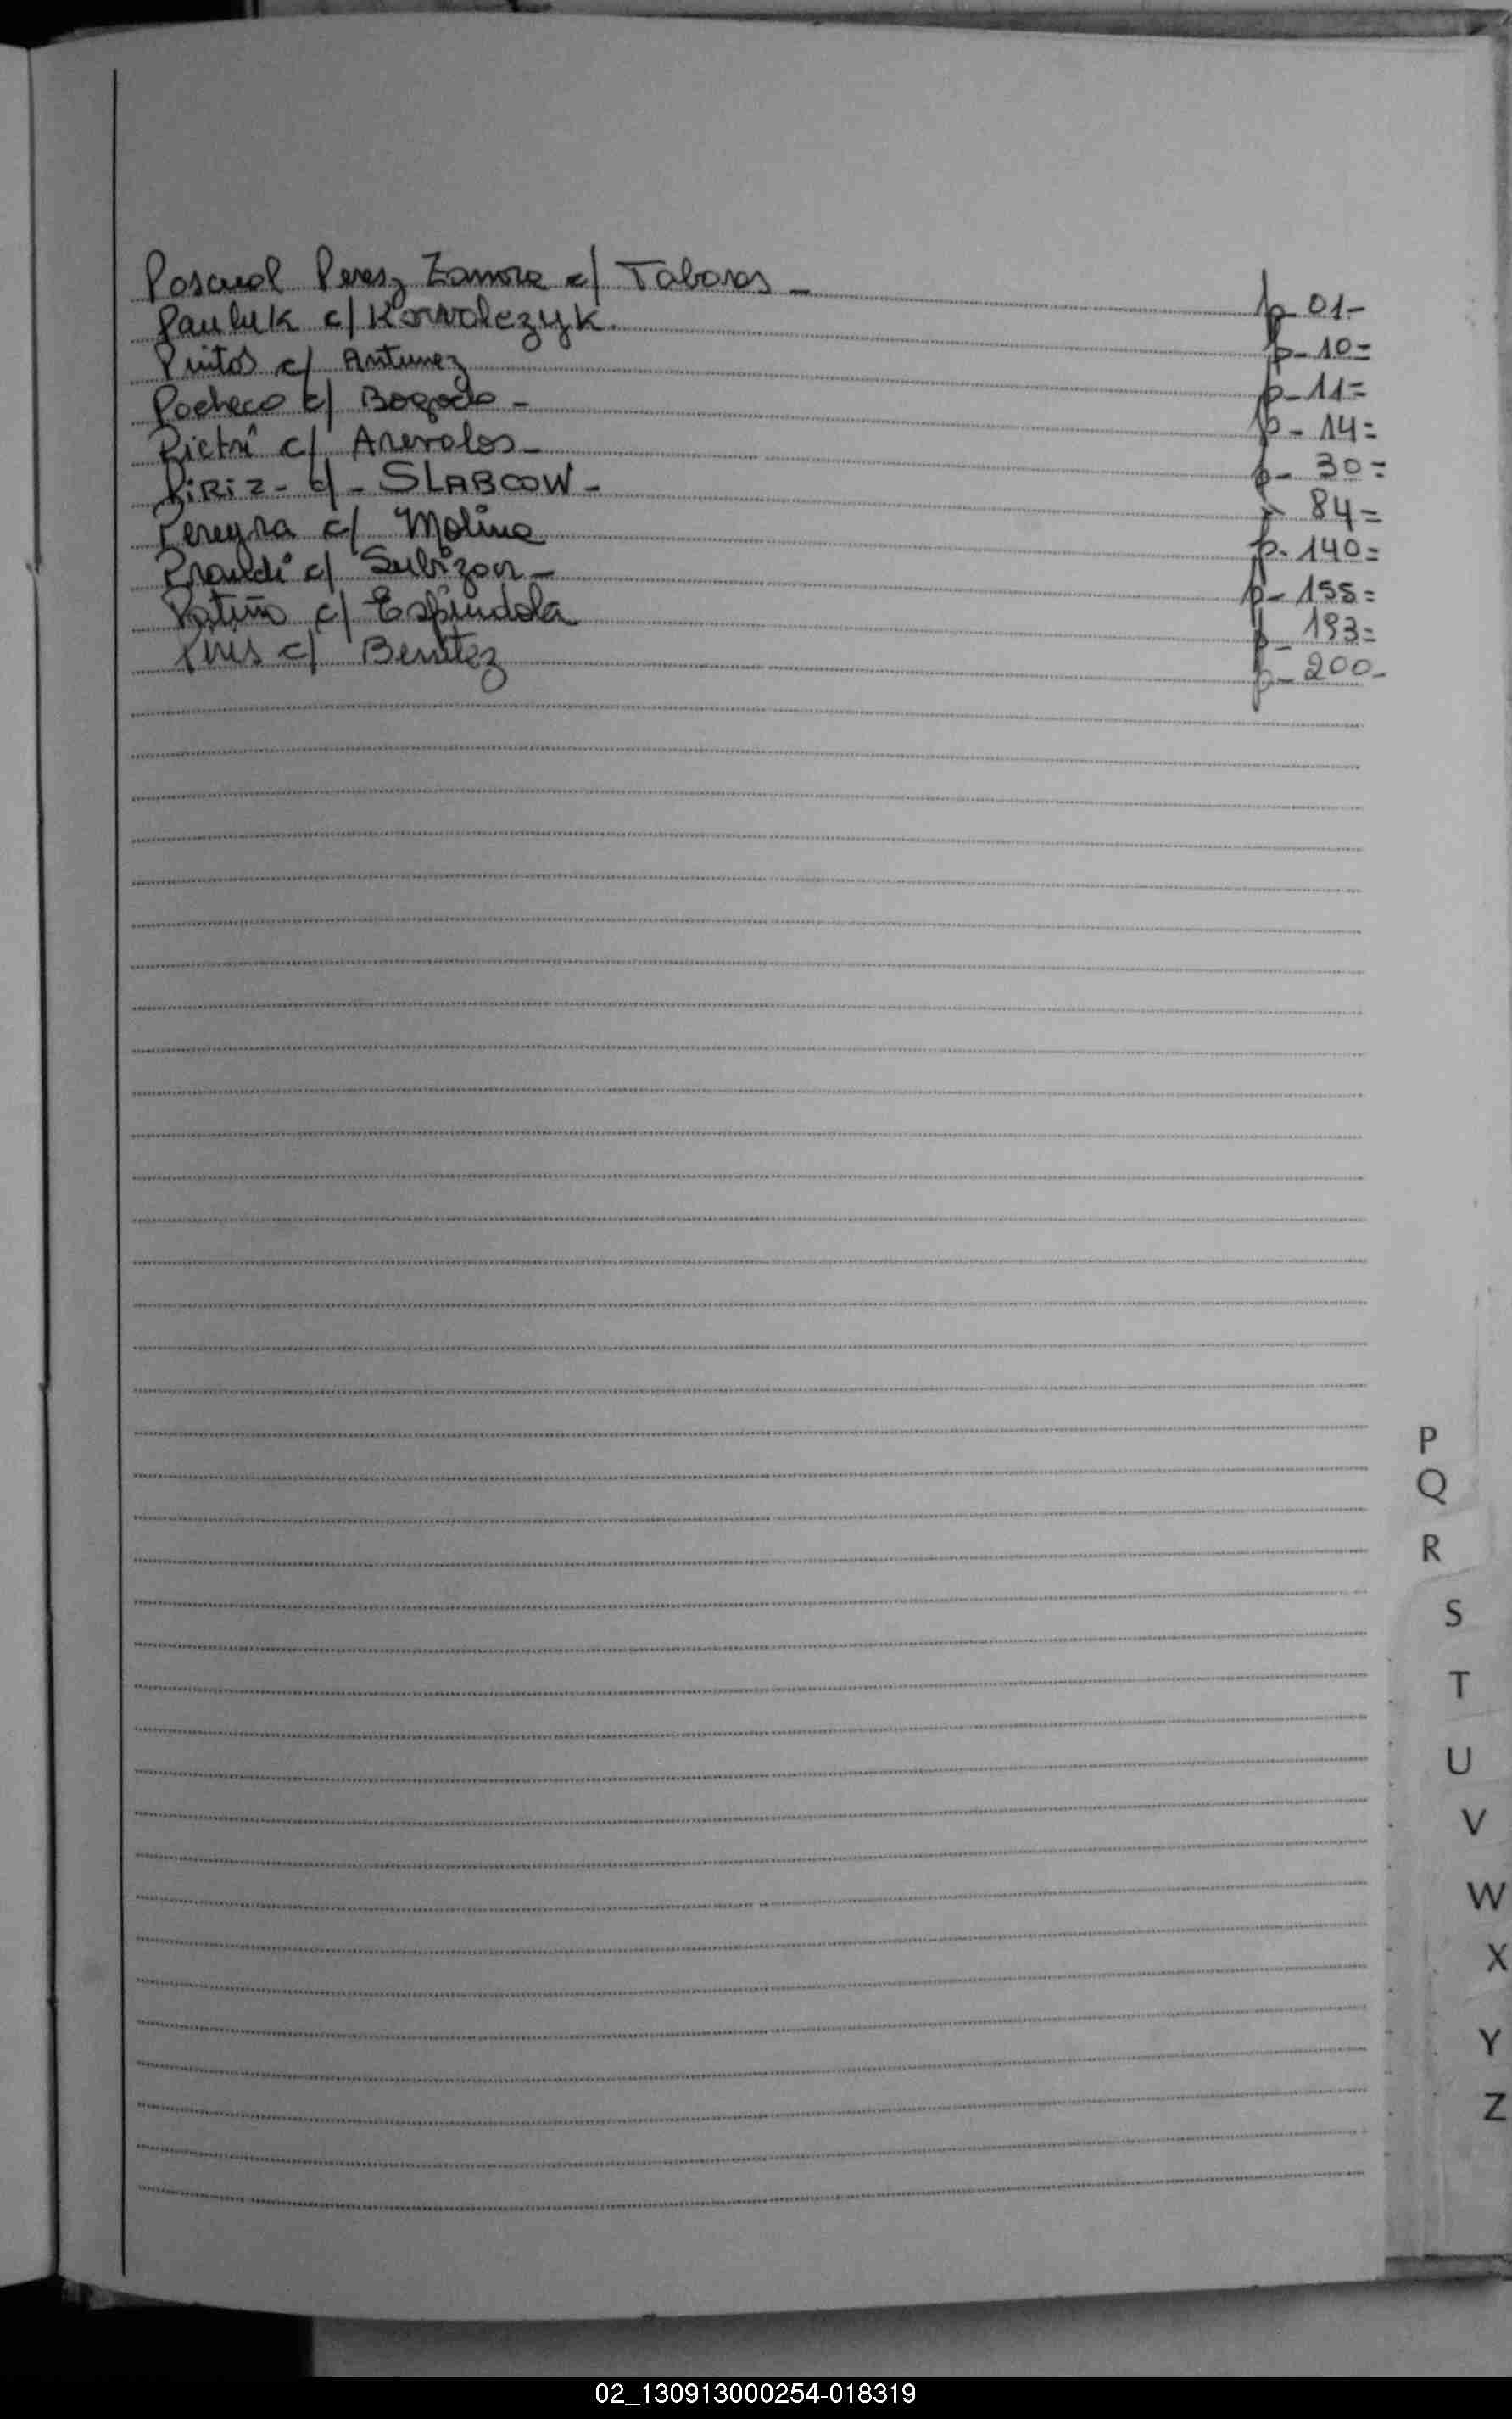 Pascual Perez Zamora c/ Tabaras - p- 01-
Pauluk c/ Korvalczyk. p- 10=
Pintos c/ Antunez p- 11=
Pacheco c/ Bogado - p- 14=
Pietri c/ Arevalos - p- 30=
PiRiz - c/ - SLABCOW - p- 84=
Pereyra c/ Molina p- 140=
c/ p- 155=
Patiño c/ Espindola p- 193=
Piris c/ Benitez p- 200-
P
Q
R
S
T
U
V
W
X
Y
Z
02_130913000254-018319